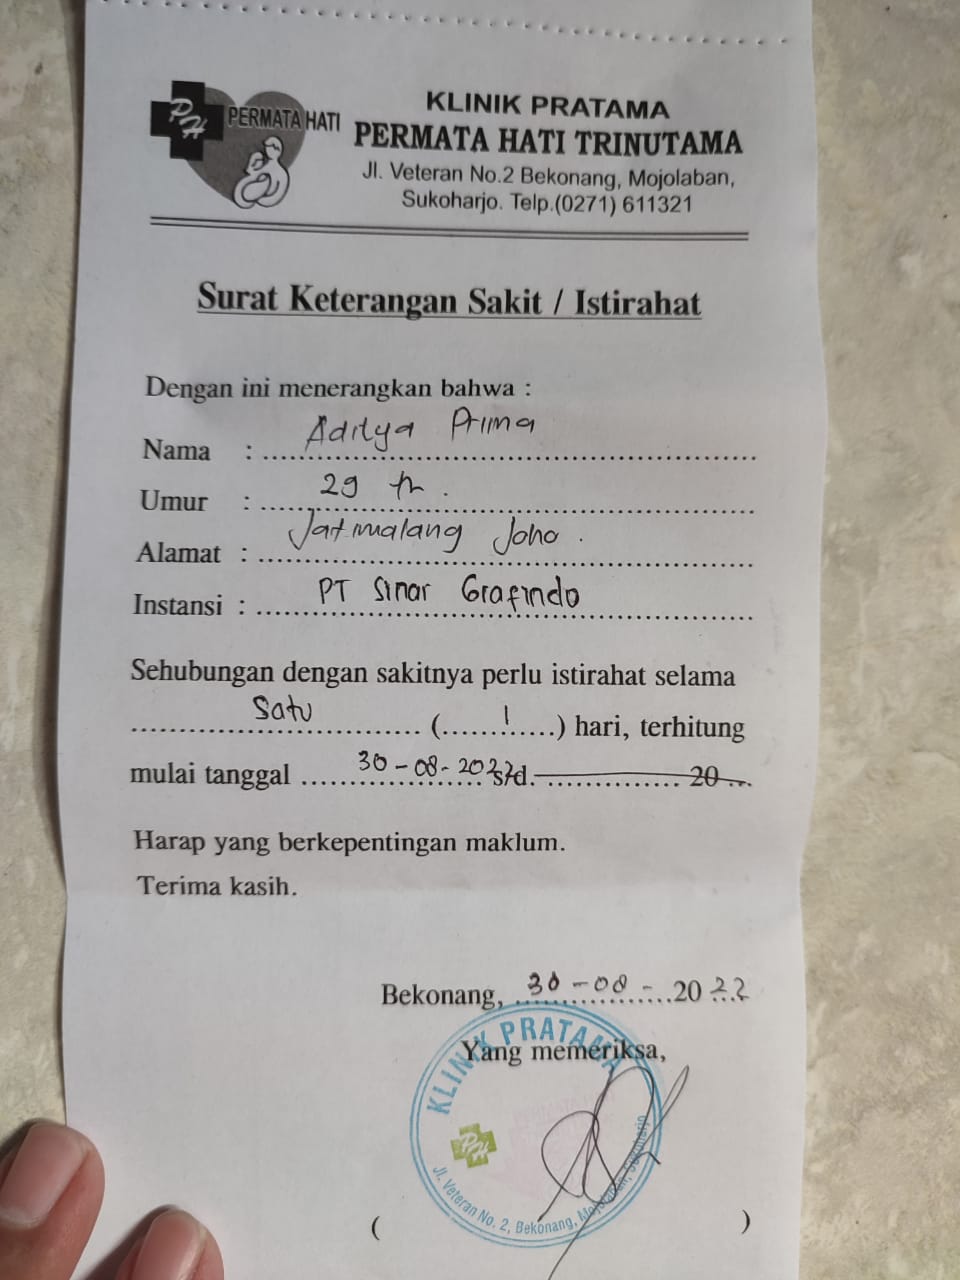 PH PERMATA HATI
KLINIK PRATAMA
PERMATA HATI TRINUTAMA
Jl. Veteran No.2 Bekonang, Mojolaban,
Sukoharjo. Telp.(0271) 611321
Surat Keterangan Sakit / Istirahat
Dengan ini menerangkan bahwa :
Nama : Aditya Prima
Umur : 29 th.
Alamat : Jatimalang Joho.
Instansi : PT Sinar Grafindo
Sehubungan dengan sakitnya perlu istirahat selama
Satu (1) hari, terhitung
mulai tanggal 30-08-2022 s/d. 20
Harap yang berkepentingan maklum.
Terima kasih.
Bekonang, 30-08-2022
Yang memeriksa,
KLINIK PRATAMA
PH
Jl. Veteran No. 2, Bekonang, Mojolaban, Sukoharjo
( )